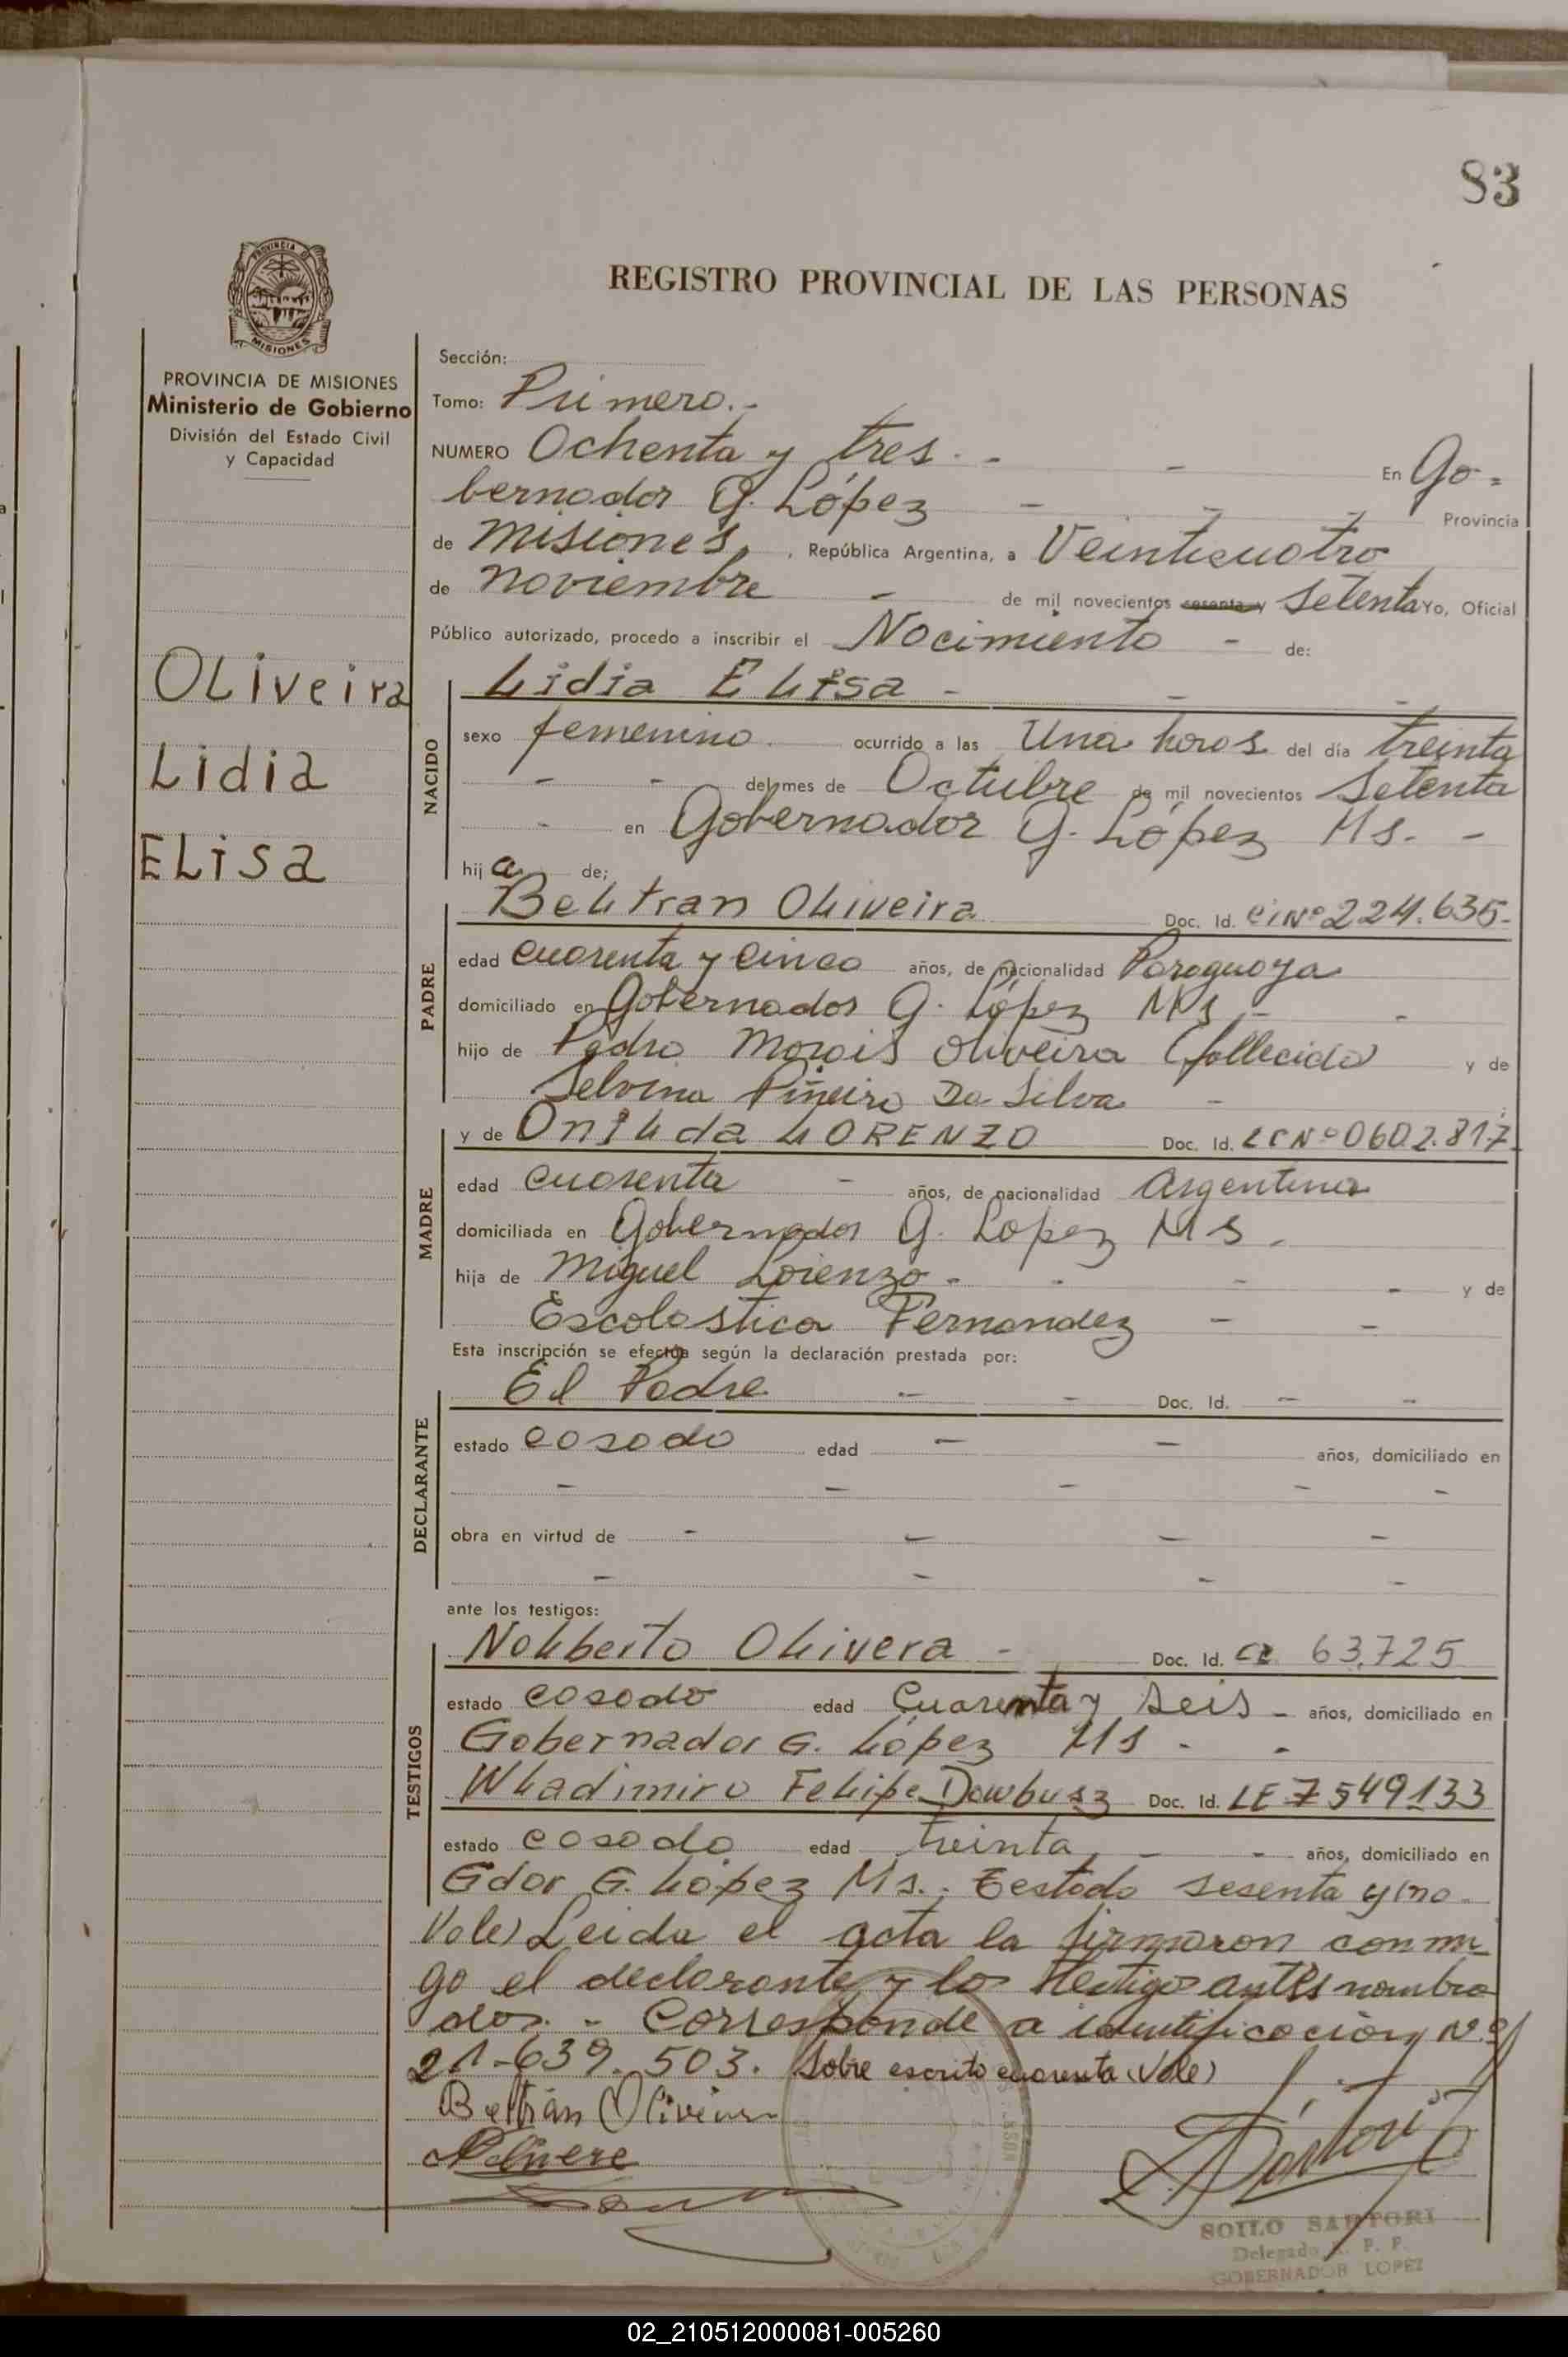 83
REGISTRO PROVINCIAL DE LAS PERSONAS
PROVINCIA DE MISIONES
Ministerio de Gobierno
División del Estado Civil
y Capacidad
OLiveira
Lidia
ELisa
Sección:
Tomo: Primero.-
NUMERO Ochenta y tres. - - En Go=
bernador G. López - - - Provincia
de Misiones, , República Argentina, a Veinticuatro
de noviembre - de mil novecientos sesenta y Setenta Yo, Oficial
Público autorizado, procedo a inscribir el Nacimiento - de:
NACIDO
Lidia ELisa - - -
sexo femenino. ocurrido a las Una horas del día treinta
- - del mes de Octubre de mil novecientos Setenta
- en Gobernador G. López Ms. -
hija de:
PADRE
BeLtran OLiveira Doc. Id. CiNº 224.635-
edad cuarenta y cinco años, de nacionalidad Paraguaya
domiciliado en Gobernador G. López Ms - -
hijo de Pedro Morais Oliveira (fallecido) y de
Selvina Piñeiro Da Silva -
MADRE
y de OniLda LORENZO Doc. Id. LCNº 0602.817-
edad cuarenta - años, de nacionalidad Argentina
domiciliada en Gobernador G. Lopez Ms -
hija de Miguel Lorenzo - - - - y de
Escolastica Fernandez - -
Esta inscripción se efectúa según la declaración prestada por:
DECLARANTE
El Padre - - Doc. Id. - -
estado casado edad - - años, domiciliado en
- - - - -
obra en virtud de - - - -
- - - -
ante los testigos:
TESTIGOS
NoLberto OLivera - Doc. Id. 63.725
estado casado edad Cuarenta y seis - años, domiciliado en
Gobernador G. López Ms - -
WLadimiro FeLipe Dowbusz Doc. Id. LE 7549133
estado casado edad treinta - - años, domiciliado en
Gdor G. López Ms.- Testado sesenta y (no
Vale) Leida el acta la firmaron conmi_
go el declarante y los testigos antes nombra
dos. - Corresponde a identificacion N.º
21-639.503. Sobre escrito cuarenta (Vale)
Beltrán Oliveira
SOILO SARTORI
Delegado R. P. P.
GOBERNADOR LOPEZ
02_210512000081-005260